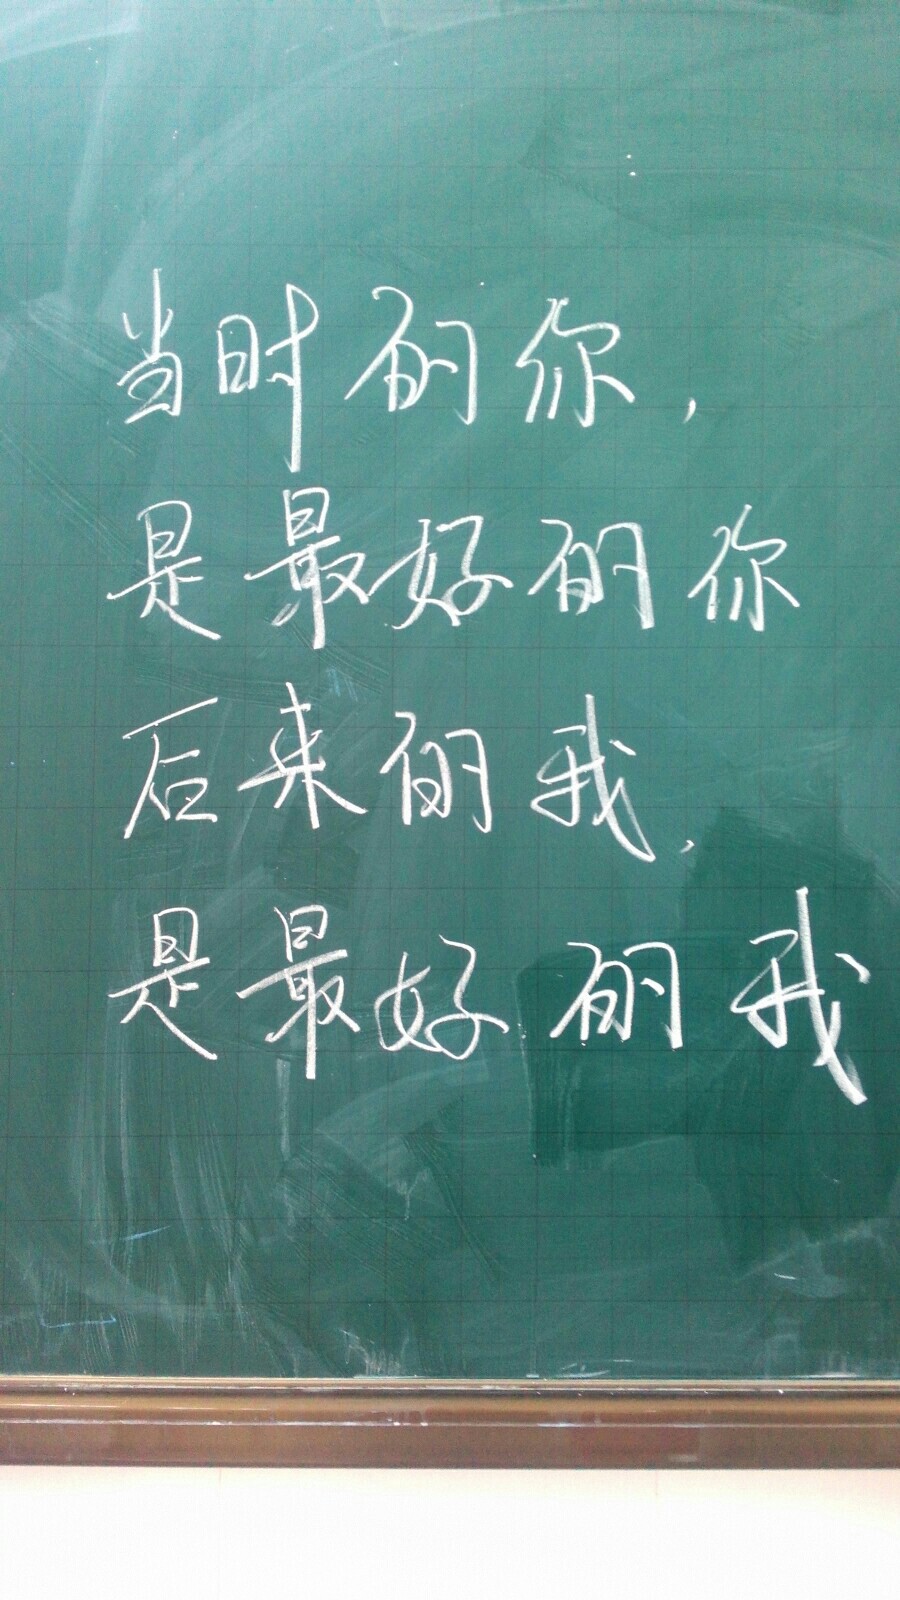 当时的你,
是最好的你
后来的我,
是最好的我